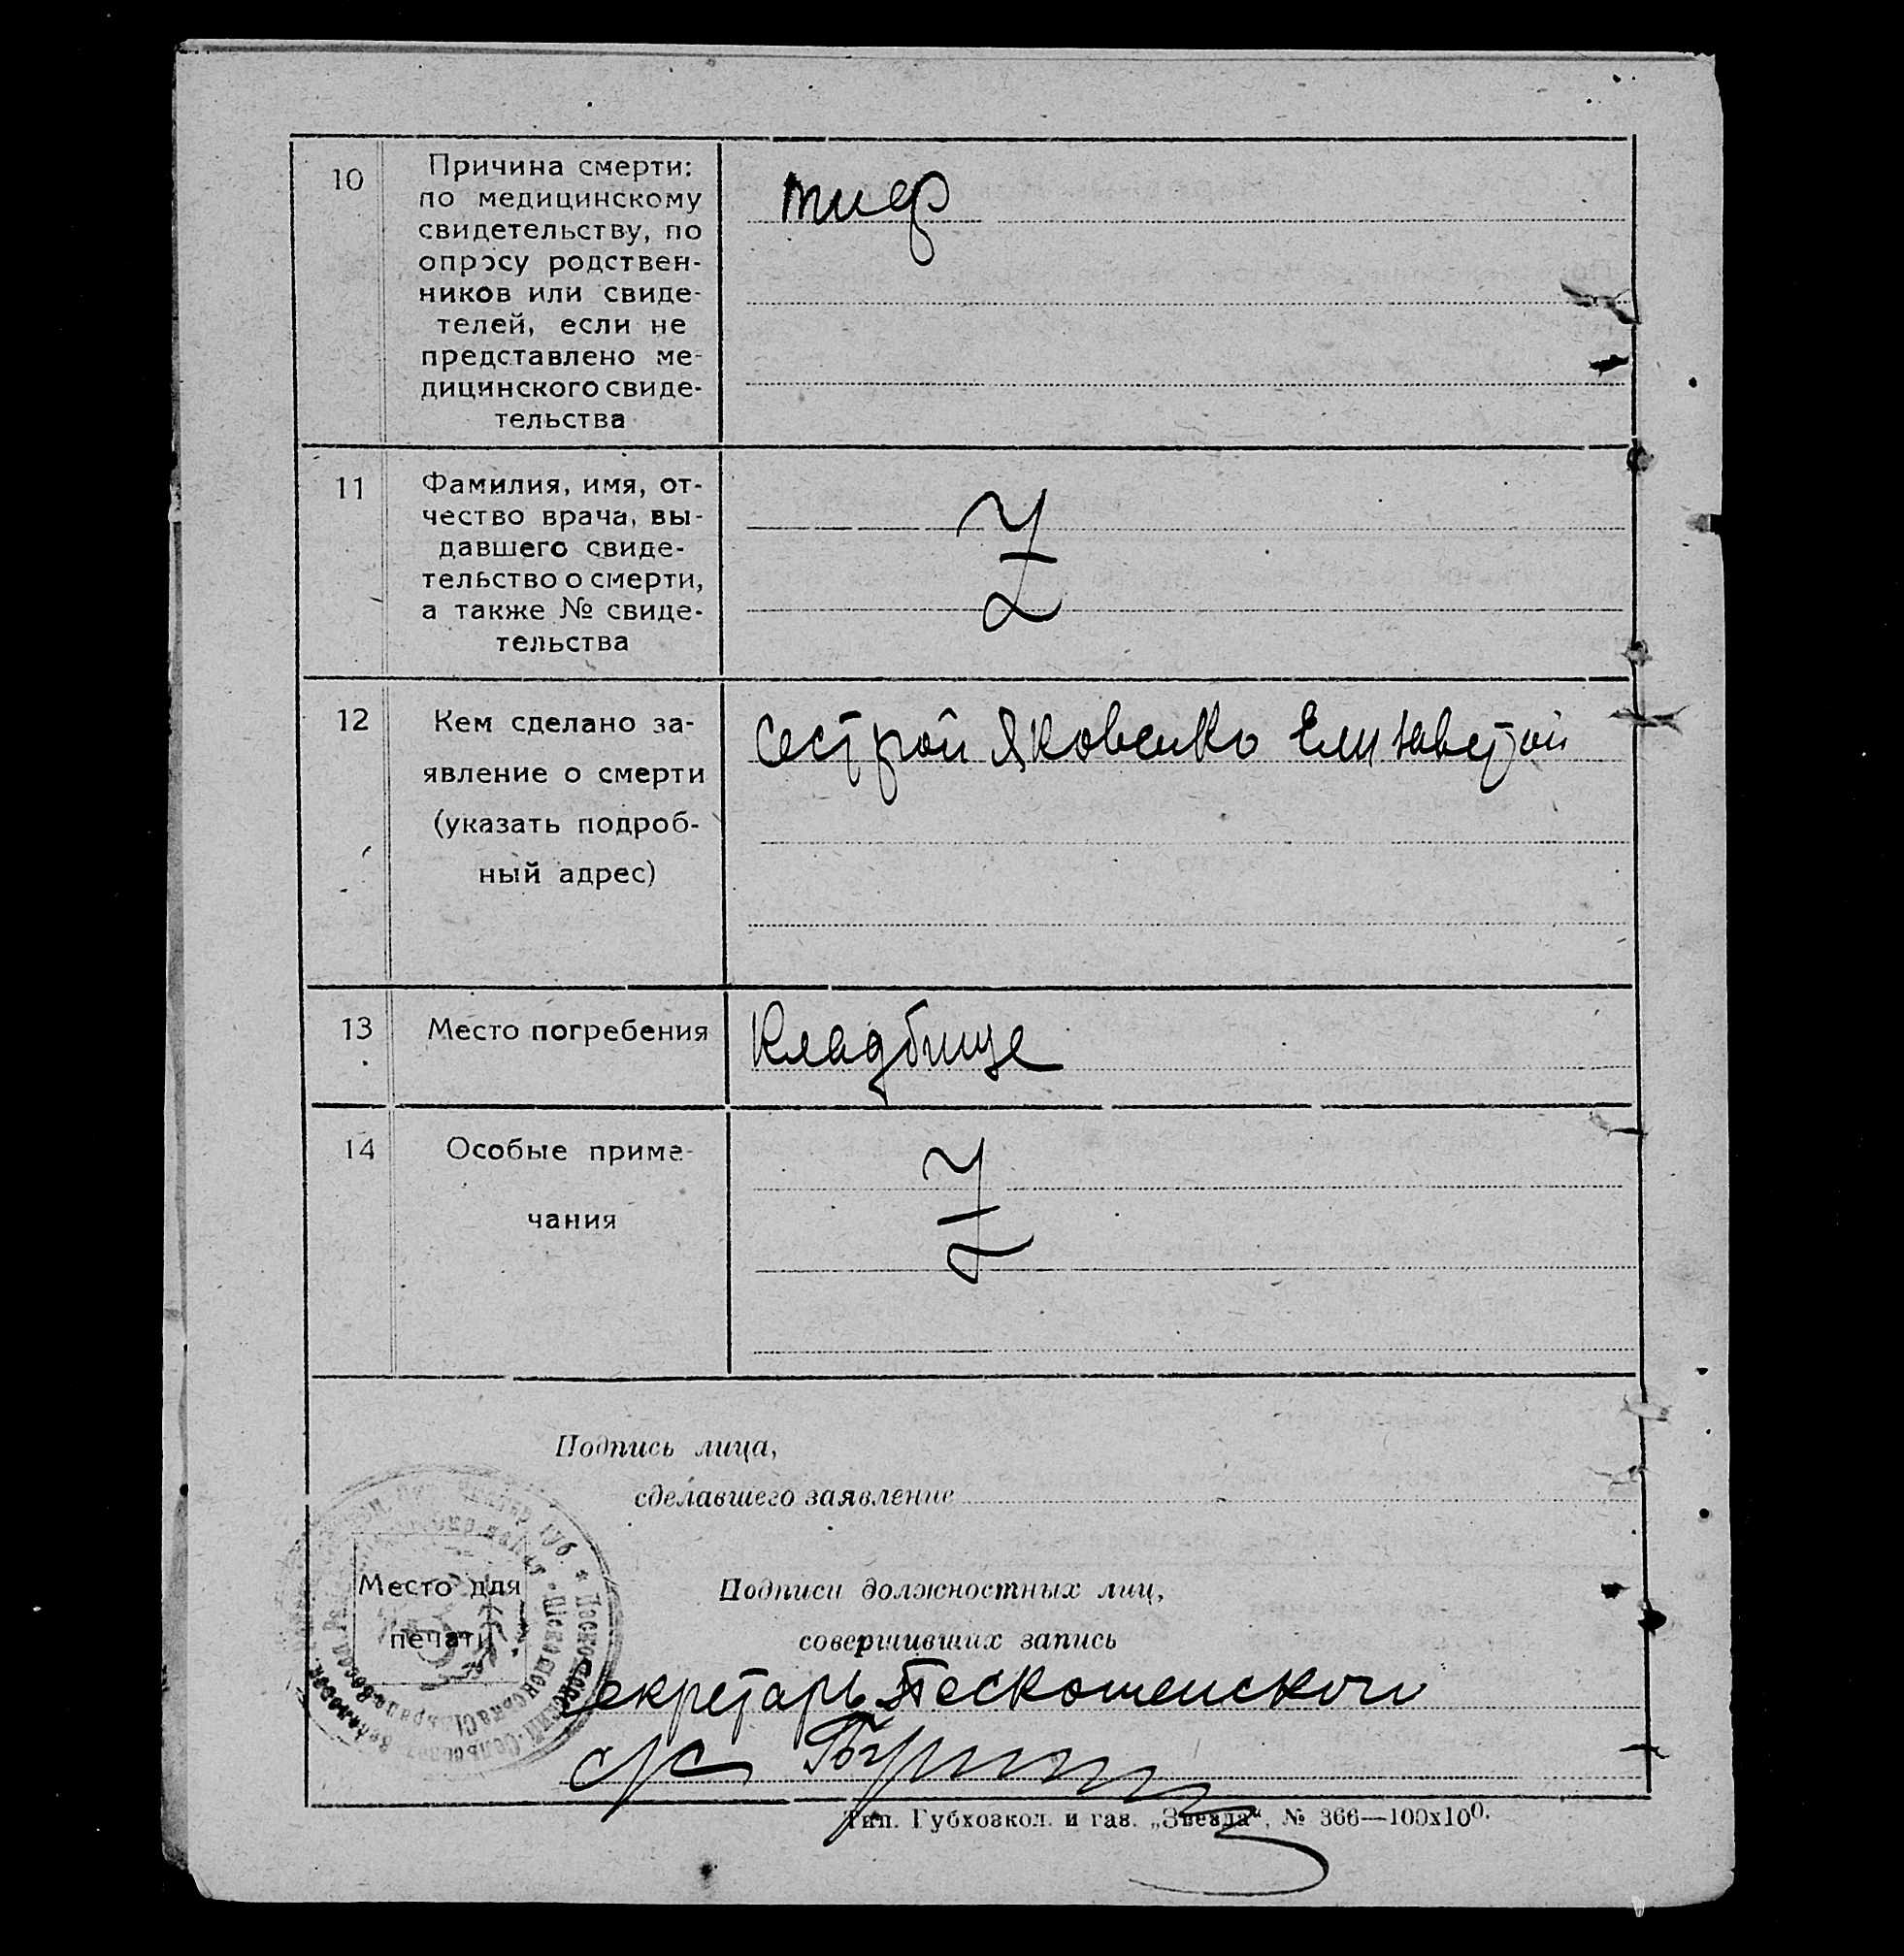 10
Причина смерти:
по медицинскому
свидетельству, по
опросу родствен-
ников или свиде-
телей, если не
представлено ме-
дицинского свиде-
тельства
тиф
11
Фамилия, имя, от-
чество врача, вы-
давшего свиде-
тельство о смерти,
а также № свиде-
тельства
12
Кем сделано за-
явление о смерти
(указать подроб-
ный адрес)
Сестрой Яковенко Елизаветой
13
Место погребения
Кладбище
14
Особые приме-
чания
Подпись лица,
сделавшего заявление
Место для
печати
Подписи должностных лиц,
совершивших запись
Секретарь Пескошенской
с/с
Тип. Губхозкол. и газ. „Звезда“, № 366—100х100.